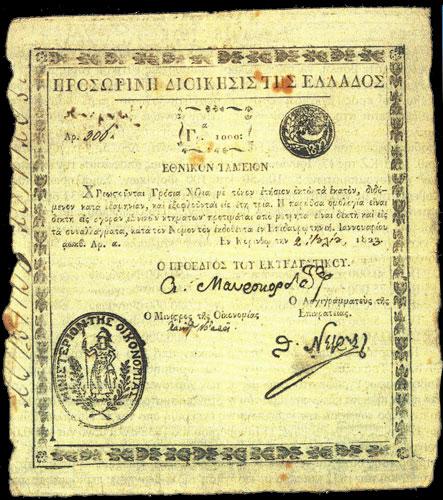 ΠΡΟΣΩΡΙΝΗ ΔΙΟΙΚΗΣΙΣ ΤΗΣ ΕΛΛΑΔΟΣ
Αρ.
Γρ. 1000:
ΕΘΝΙΚΟΝ ΤΑΜΕΙΟΝ
Χρεωστοῦνται Γρόσια Χίλια μὲ τόκον ἐτήσιον ὀκτὼ τὰ ἑκατόν, διδό-
μενον κατὰ ἑξαμηνίαν, καὶ ἐξοφλοῦνται εἰς ἔτη τρία. Ἡ παροῦσα ὁμολογία εἶναι
δεκτὴ εἰς ἀγορὰν ἐθνικῶν κτημάτων εἶναι δεκτὴ καὶ εἰς
τὰ συναλλάγματα, κατὰ τὸν Νόμον τὸν ἐκδοθέντα ἐν Ἐπιδαύρῳ τῇ Ἰαννουαρίου
αωκβ. Αρ. α. Ἐν Κορίνθῳ τὴν 1822
Ο ΠΡΟΕΔΡΟΣ ΤΟΥ ΕΚΤΕΛΕΣΤΙΚΟΥ.
Α. Μαυροκορδάτος
Ο Μινίστρος τῆς Οἰκονομίας
Ο Ἀρχιγραμματεὺς τῆς
Ἐπικρατείας.
Θ. Νέγρης
ΜΙΝΙΣΤΕΡΙΟΝ ΤΗΣ ΟΙΚΟΝΟΜΙΑΣ